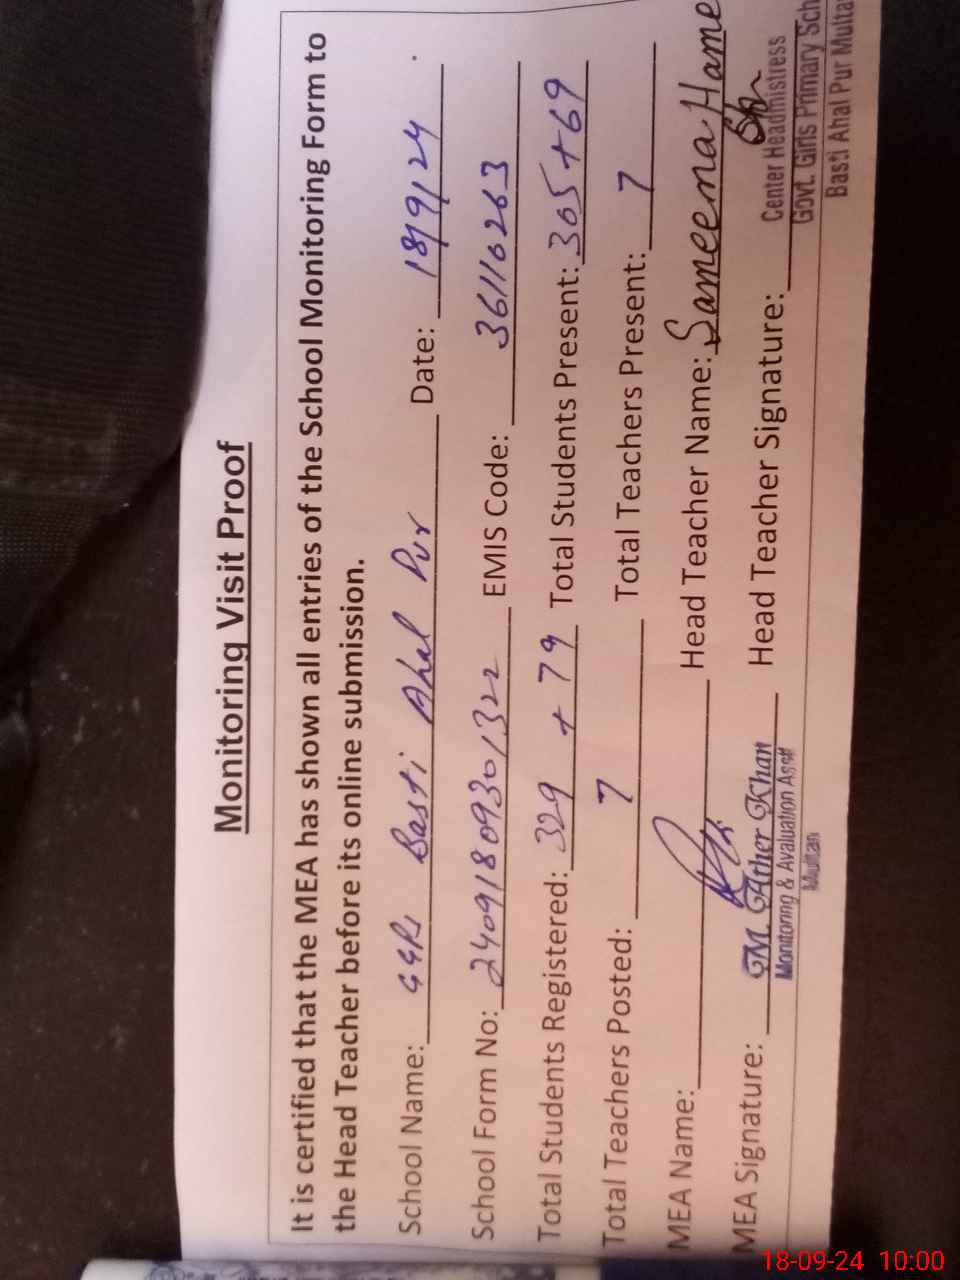 Monitoring Visit Proof
It is certified that the MEA has shown all entries of the School Monitoring Form to
the Head Teacher before its online submission.
School Name: GGPS Basti Ahal Pur Date: 18/9/24
School Form No: 24091809301322 EMIS Code: 36110263
Total Students Registered: 329 + 79 Total Students Present: 305 + 69
Total Teachers Posted: 7 Total Teachers Present: 7
MEA Name: Head Teacher Name: Sameema Hame
MEA Signature: M. Ather Khan Head Teacher Signature:
Monitoring & Evaluation Asstt
Multan
Center Headmistress
Govt. Girls Primary Sch
Basti Ahal Pur Multan
18-09-24 10:00